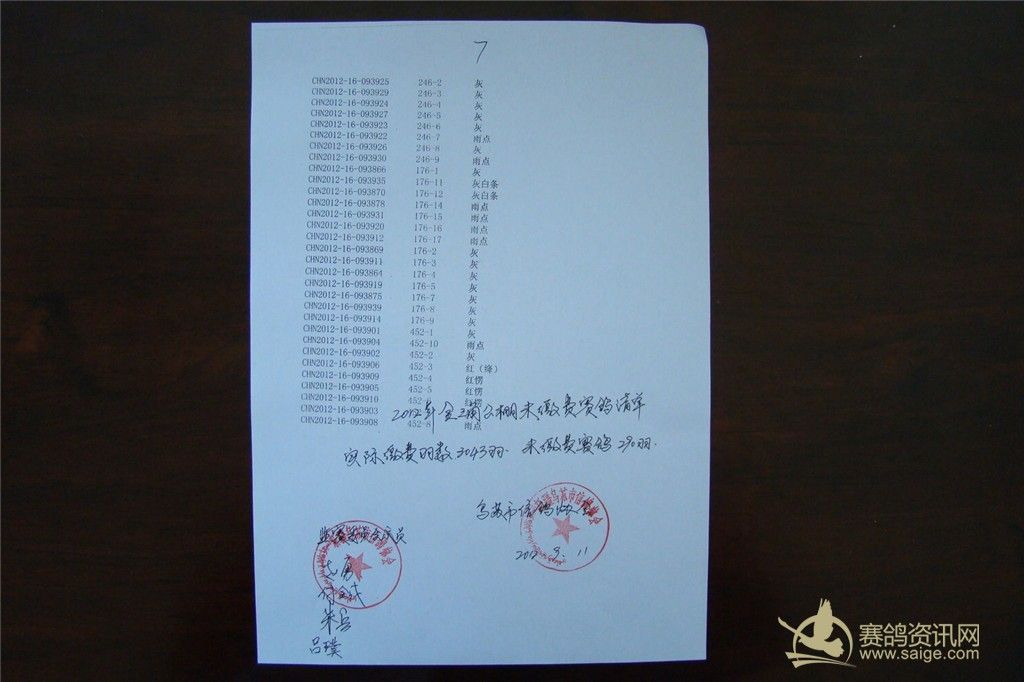 7
CHN2012-16-093925 246-2 灰
CHN2012-16-093929 246-3 灰
CHN2012-16-093924 246-4 灰
CHN2012-16-093927 246-5 灰
CHN2012-16-093923 246-6 灰
CHN2012-16-093922 246-7 雨点
CHN2012-16-093926 246-8 灰
CHN2012-16-093930 246-9 雨点
CHN2012-16-093866 176-1 灰
CHN2012-16-093935 176-11 灰白条
CHN2012-16-093870 176-12 灰白条
CHN2012-16-093878 176-14 雨点
CHN2012-16-093931 176-15 雨点
CHN2012-16-093920 176-16 雨点
CHN2012-16-093912 176-17 雨点
CHN2012-16-093869 176-2 灰
CHN2012-16-093911 176-3 灰
CHN2012-16-093864 176-4 灰
CHN2012-16-093919 176-5 灰
CHN2012-16-093875 176-7 灰
CHN2012-16-093939 176-8 灰
CHN2012-16-093914 176-9 灰
CHN2012-16-093901 452-1 灰
CHN2012-16-093904 452-10 雨点
CHN2012-16-093902 452-2 灰
CHN2012-16-093906 452-3 红（绛）
CHN2012-16-093909 452-4 红楞
CHN2012-16-093905 452-5 红楞
CHN2012-16-093910 452-6 红楞
CHN2012-16-093903
CHN2012-16-093908 452-8 雨点
2012年金三角公棚未缴费赛鸽清单
实际缴费羽数2043羽. 未缴费赛鸽290羽.
乌苏市信鸽协会
2012.9.11
监赛委员会成员
朱兵
吕璞
赛鸽资讯网
www.saige.com